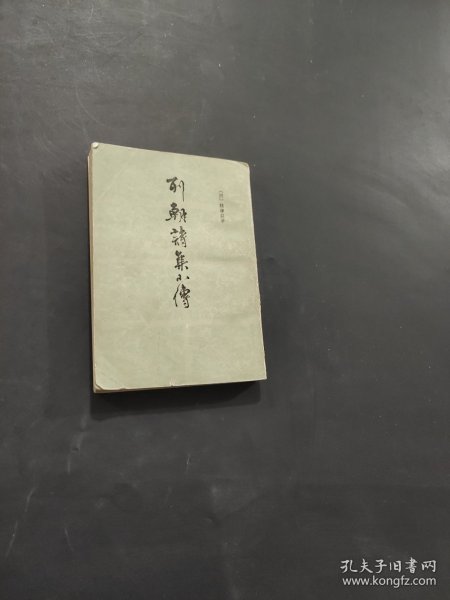 列朝詩集小傳
〔清〕錢謙益著
孔夫子旧书网
www.kongfz.com